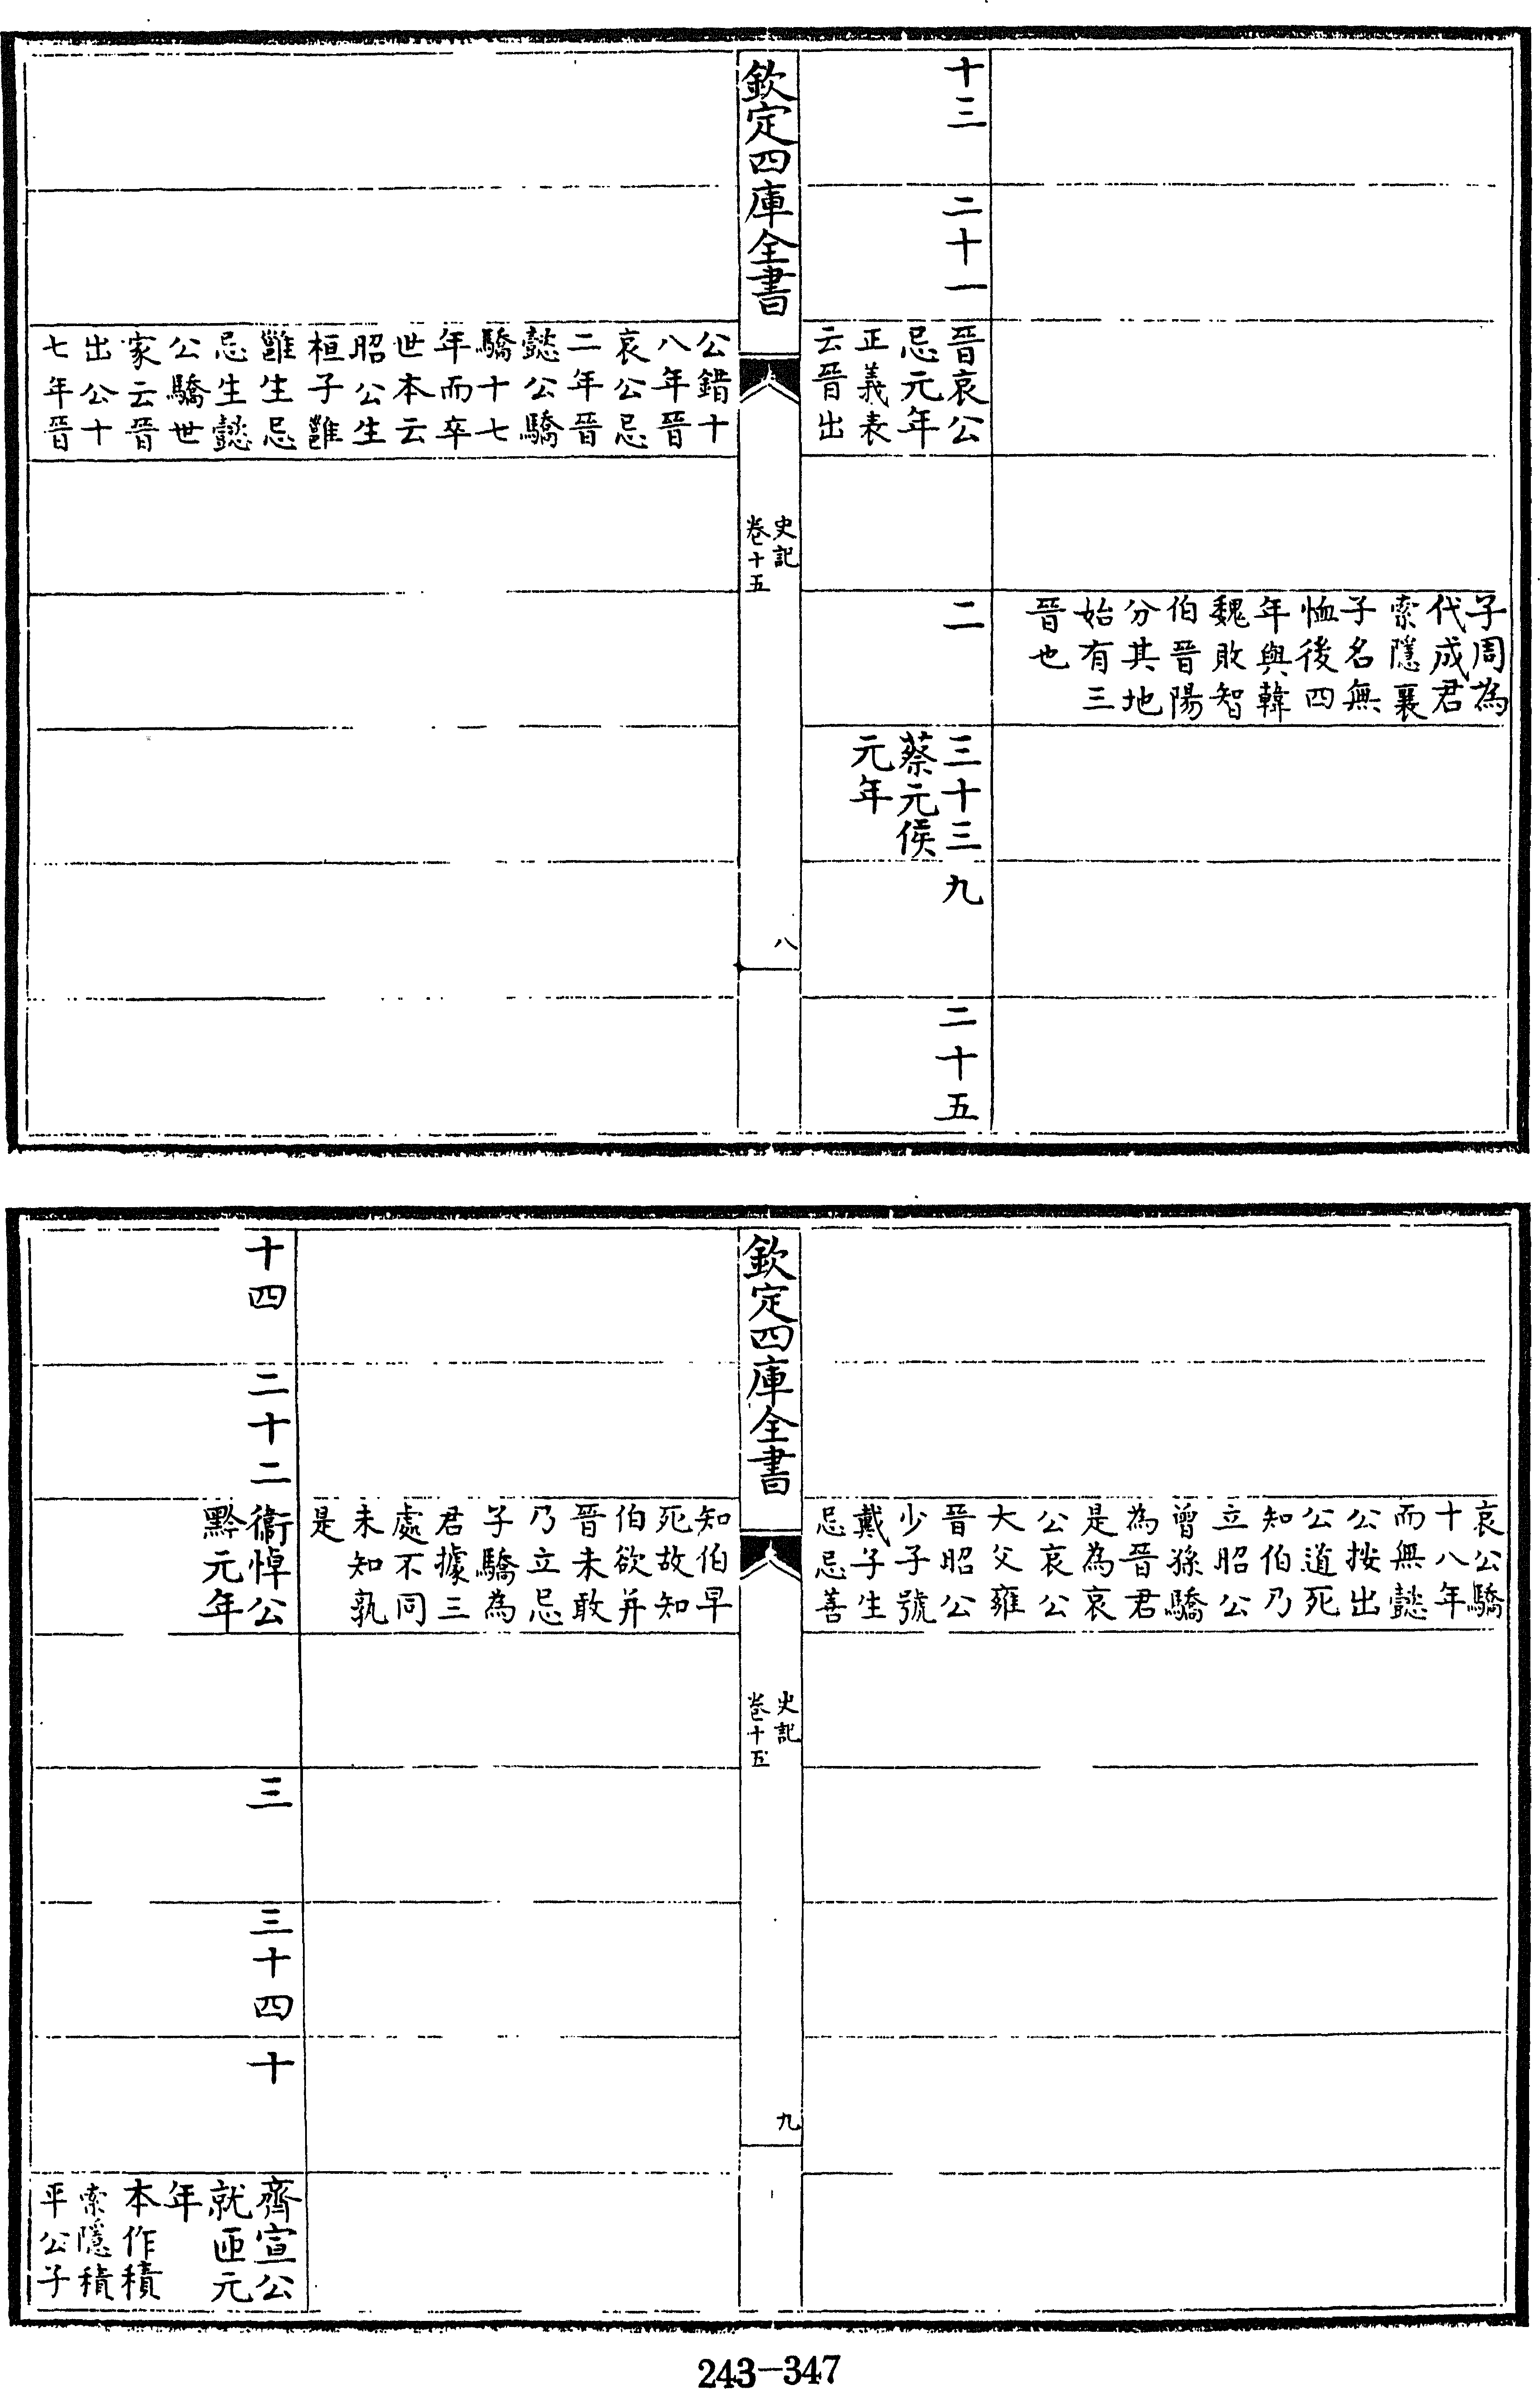 子周為
代成君
索隱襄
子名無
恤後四
年與韓
魏敗智
伯晉陽
分其地
始有三
晉也
十三
二十一
晉哀公
忌元年
正義表
云晉出
二
三十三
蔡元侯
元年
九
二十五
欽定四庫全書
史記
卷十五
八
公錯十
八年晉
哀公忌
二年晉
懿公驕
驕十七
年而卒
世本云
昭公生
桓子雝
雝生忌
忌生懿
公驕世
家云晉
出公十
七年晉
哀公驕
十八年
而無懿
公按出
公道死
知伯乃
立昭公
曾孫驕
為晉君
是為哀
公哀公
大父雍
晉昭公
少子號
戴子生
忌忌善
欽定四庫全書
史記
卷十五
九
知伯早
死故知
伯欲并
晉未敢
乃立忌
子驕為
君據三
處不同
未知孰
是
十四
二十二
衞悼公
黔元年
三
三十四
十
齊宣公
就匝元
年
本作積
索隱積
平公子
243-347